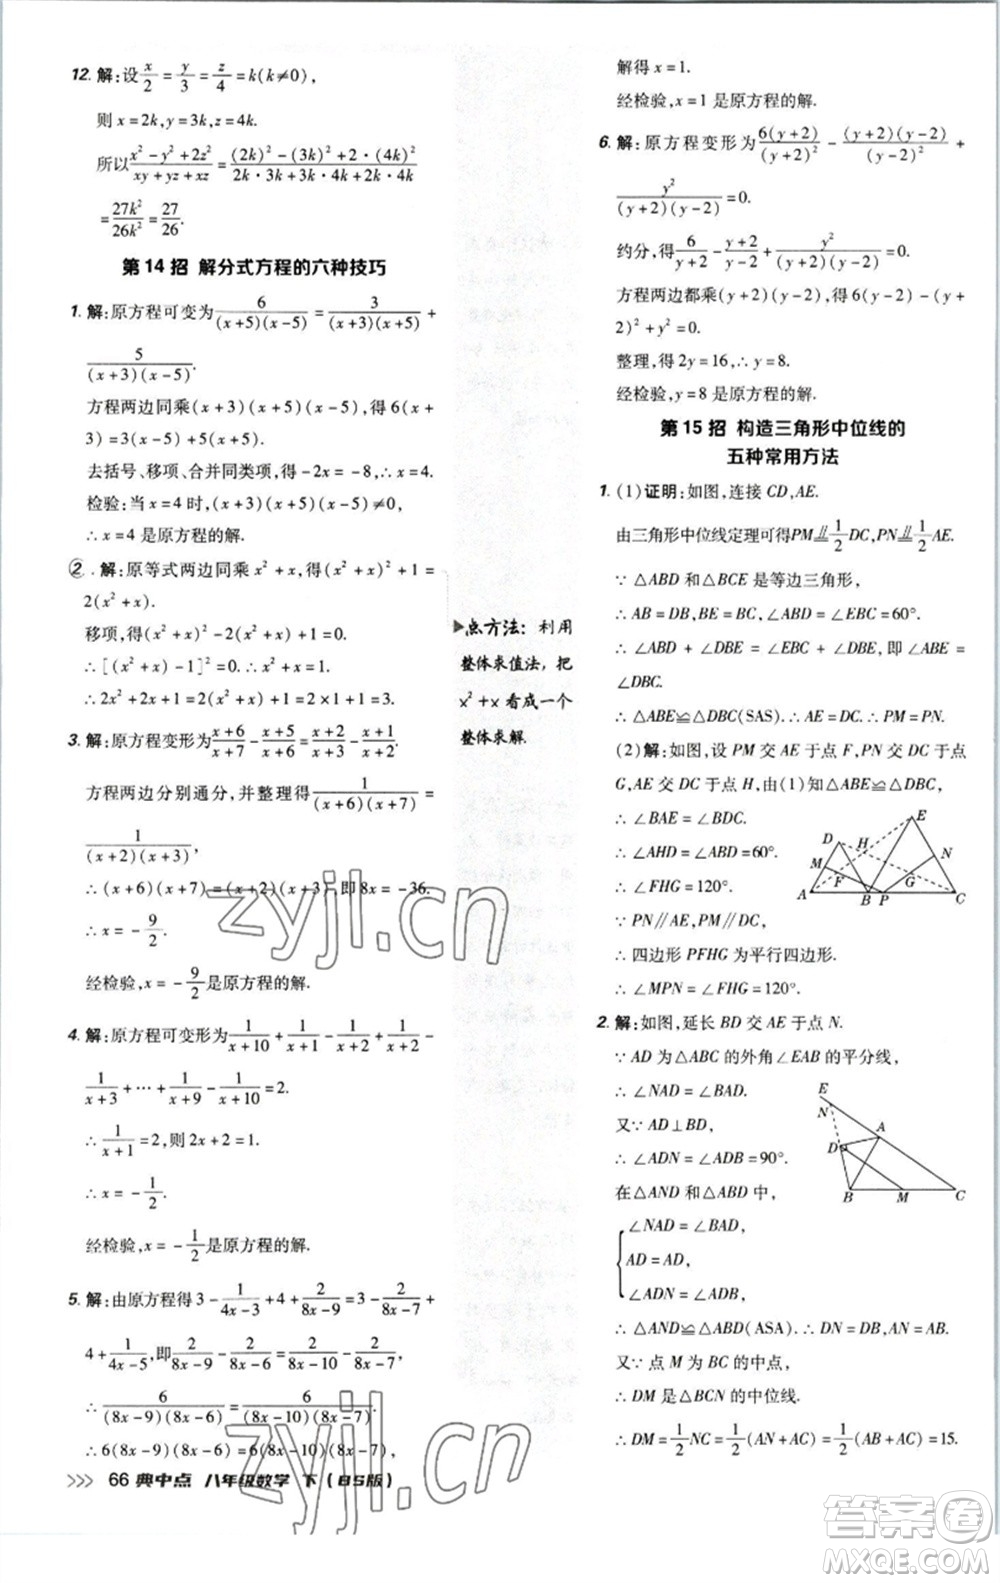 12. 解:设x/2=y/3=z/4=k(k≠0),
则 x=2k,y=3k,z=4k.
所以(x²-y²+2z²)/(xy+yz+xz)=((2k)²-(3k)²+2·(4k)²)/(2k·3k+3k·4k+2k·4k)
=27k²/26k²=27/26.
第 14 招 解分式方程的六种技巧
1. 解:原方程可变为6/((x+5)(x-5))=3/((x+3)(x+5))+
5/((x+3)(x-5)).
方程两边同乘(x+3)(x+5)(x-5),得6(x+
3)=3(x-5)+5(x+5).
去括号、移项、合并同类项,得-2x=-8,∴x=4.
检验:当 x=4 时,(x+3)(x+5)(x-5)≠0,
∴x=4 是原方程的解.
2. 解:原等式两边同乘 x²+x,得(x²+x)²+1=
2(x²+x).
移项,得(x²+x)²-2(x²+x)+1=0.
∴[(x²+x)-1]²=0.∴x²+x=1.
∴2x²+2x=2(x²+x)=2×1=2.
3. 解:原方程变形为(x+6)/(x+7)-(x+5)/(x+6)=(x+2)/(x+3)-(x+1)/(x+2).
方程两边分别通分,并整理得1/((x+6)(x+7))=
1/((x+2)(x+3)),
∴(x+6)(x+7)=(x+2)(x+3),即8x=-36.
∴x=-9/2.
经检验,x=-9/2是原方程的解.
4. 解:原方程可变形为1/(x+10)+1/(x+1)-1/(x+2)+1/(x+2)-
1/(x+3)+…+1/(x+9)-1/(x+10)=2.
∴1/(x+1)=2,则 2x+2=1.
∴x=-1/2.
经检验,x=-1/2是原方程的解.
5. 解:由原方程得3-1/(4x-3)+4+2/(8x-9)=3-2/(8x-7)+
4+1/(4x-5),即2/(8x-9)-2/(8x-6)=2/(8x-10)-2/(8x-7),
∴6/((8x-9)(8x-6))=6/((8x-10)(8x-7)).
∴6(8x-9)(8x-6)=6(8x-10)(8x-7),
66 典中点 八年级数学 下(BS版)
点方法:利用
整体求值法,把
x²+x 看成一个
整体求解.
解得 x=1.
经检验,x=1 是原方程的解.
6. 解:原方程变形为6(y+2)/(y+2)²-(y+2)(y-2)/(y+2)²+
y²/((y+2)(y-2))=0.
约分,得6/(y+2)-(y-2)/(y+2)+y²/((y+2)(y-2))=0.
方程两边都乘(y+2)(y-2),得 6(y-2)-(y-
2)²+y²=0.
整理,得 2y=16,∴y=8.
经检验,y=8 是原方程的解.
第 15 招 构造三角形中位线的
五种常用方法
1. (1)证明:如图,连接 CD,AE.
由三角形中位线定理可得PM⫽1/2DC,PN⫽1/2AE.
∵△ABD 和△BCE 是等边三角形,
∴AB=DB,BE=BC,∠ABD=∠CBE=60°.
∴∠ABD+∠DBE=∠CBE+∠DBE,即∠ABE=
∠DBC.
∴△ABE≌△DBC(SAS).∴AE=DC.∴PM=PN.
(2)解:如图,设 PM 交 AE 于点 F,PN 交 DC 于点
G,AE 交 DC 于点 H,由(1)知△ABE≌△DBC,
∴∠BAE=∠BDC.
∴∠AHD=∠ABD=60°.
∴∠FHG=120°.
∵PN∥AE,PM∥DC,
∴四边形 PFHG 为平行四边形.
∴∠MPN=∠FHG=120°.
A B P C D E F G H M N
2. 解:如图,延长 BD 交 AE 于点 N.
∵AD 为△ABC 的外角∠EAB 的平分线,
∴∠NAD=∠BAD.
又∵AD⊥BD,
∴∠ADN=∠ADB=90°.
在△AND 和△ABD 中,
∠NAD=∠BAD,
AD=AD,
∠ADN=∠ADB,
∴△AND≌△ABD(ASA).∴DN=DB,AN=AB.
又∵点 M 为 BC 的中点,
∴DM 是△BCN 的中位线.
∴DM=1/2NC=1/2(AN+AC)=1/2(AB+AC)=15.
E N A D B M C
zyjl.cn
zyjl.cn
答案圈
MXQE.COM